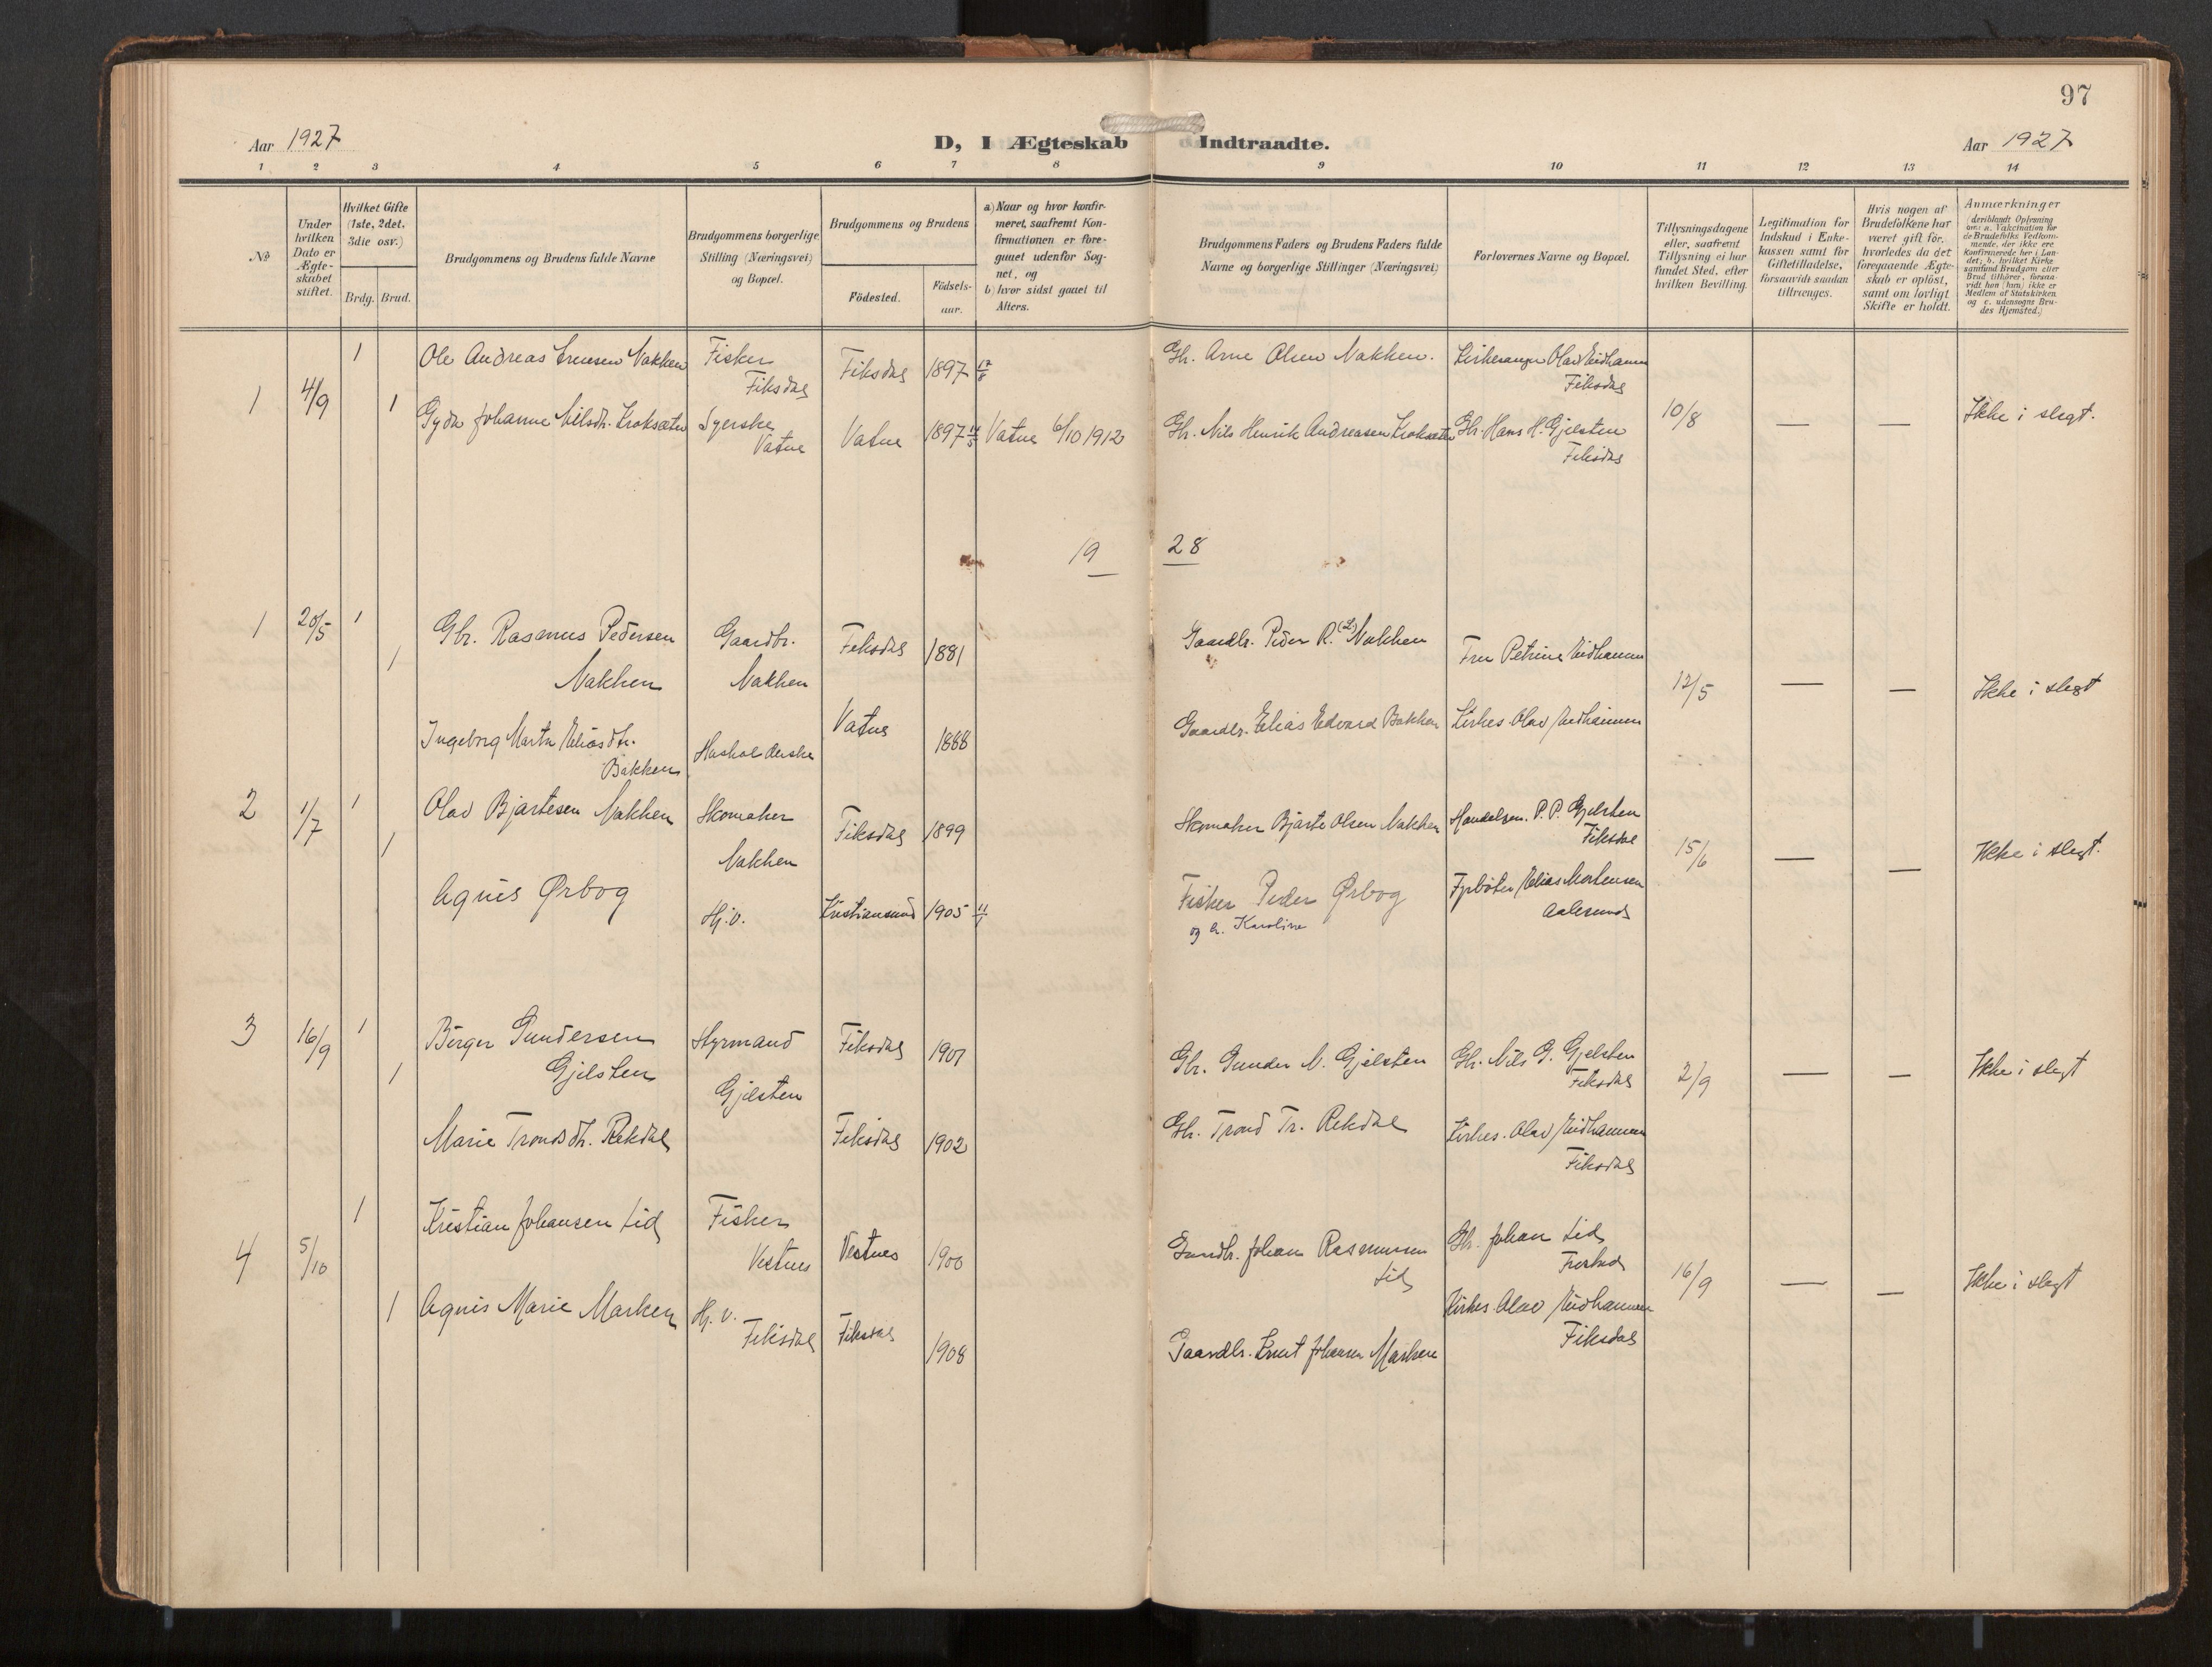 97
Aar 1927
D, I Ægteskab Indtraadte.
Aar 1927
1 2 3 4 5 6 7 8 9 10 11 12 13 14
No
Under
hvilken
Dato er
Ægte-
skabet
stiftet.
Hvilket Gifte
(1ste, 2det,
3die osv.)
Brdg. Brud.
Brudgommens og Brudens fulde Navne
Brudgommens borgerlige
Stilling (Næringsvei)
og Bopæl.
Brudgommens og Brudens
Födested.
Födsels-
aar.
a) Naar og hvor konfir-
meret, saafremt Kon-
firmationen er fore-
gaaet udenfor Sog-
net, og
b) hvor sidst gaaet til
Alters.
Brudgommens Faders og Brudens Faders fulde
Navne og borgerlige Stillinger (Næringsvei)
Forlovernes Navne og Bopæl.
Tillysningsdagene
eller, saafremt
Tillysning ei har
fundet Sted, efter
hvilken Bevilling.
Legitimation for
Indskud i Enke-
kassen samt for
Giftetilladelse,
forsaavidt saadan
tiltrænges.
Hvis nogen af
Brudefolkene har
været gift för,
hvorledes da det
foregaaende Ægte-
skab er oplöst,
samt om lovligt
Skifte er holdt.
Anmærkninger
(deriblandt Oplysning
om: a. Vakcination for
de Brudefolks Vedkom-
mende, der ikke ere
Konfirmerede her i Lan-
det; b. hvilket Kirke-
samfund Brudgom eller
Brud tilhører, forsaa-
vidt han (hun) ikke er
Medlem af Statskirken
og c. udensogns Bru-
des Hjemsted.)
1 4/9 1 Ole Andreas Nakken Fisker Fiksdal 1897 Gbr. Arne Olsen Nakken. Kirkesanger Olav Eidhamm
Fiksdal Fiksdal
1 Gyda Johanne Nilsdt. Kroksæter Syerske Vatne 1897 Vatne 6/10 1912 Gbr. Nils Henrik Andreasen Kroksæter Gbr. Hans H. Gjelsten 10/8 — — Ikke i slegt.
Vatne Fiksdal
19 28
1 20/5 1 Gbr. Rasmus Pedersen Gaardbr. Fiksdal 1881 Gaardbr. Peder R. Nakken Fru Petrine Eidhamm
1 Nakken Nakken 12/5 — — Ikke i slegt
Ingeborg Marta Eliasdtr. Husholderske Vatne 1888 Gaardbr. Elias Edvard Bakken Kirkes. Olav Eidhamm
Bakken
2 1/7 1 Olav Bjartesen Nakken Skomaker Fiksdal 1899 Skomaker Bjarte Olsen Nakken Handelsm. P. P. Gjelsten
1 Nakken Fiksdal 15/6 — — Ikke i slegt.
Agnes Ørbog Hj.v. Kristiansund 1905 11/1 Fisker Peder Ørbog Elias Mortensen
og h. Karoline Aalesund
3 16/9 1 Birger Gundersen Styrmand Fiksdal 1901 Gbr. Gunder N. Gjelsten Gbr. Nils G. Gjelsten
1 Gjelsten Gjelsten Fiksdal 2/9 — — Ikke i slegt
Marie Trondsdtr. Rekdal Fiksdal 1902 Gbr. Trond Tr. Rekdal Kirkes. Olav Eidhammer
Fiksdal
4 5/10 1 Kristian Johansen Lid Fisker Vestnes 1900 Gaardbr. Johan Rasmussen Gbr. Johan Lid
Vestnes Lid 16/9 — — Ikke i slegt
1 Agnes Marie Marken Hj. v. Fiksdal 1908 Gaardbr. Knut Johansen Marken Kirkes. Olav Eidhammer
Fiksdal Fiksdal